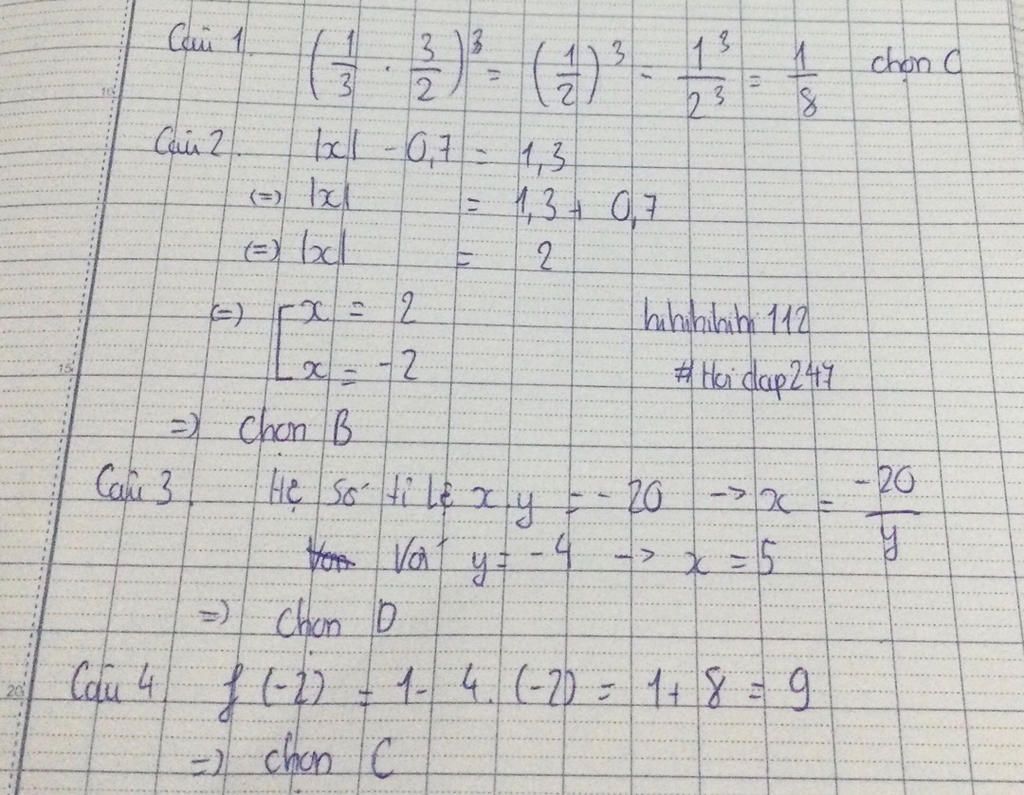 Câu 1. (1/3 . 3/2)³ = (1/2)³ = 1³/2³ = 1/8 chọn C
Câu 2. |x| - 0,7 = 1,3
(=) |x| = 1,3 + 0,7
(=) |x| = 2
(=) [ x = 2 hihihihihi112
x = -2 #Hoidap247
=) Chọn B
Câu 3. Hệ số tỉ lệ x.y = -20 -> x = -20/y
Với y = -4 -> x = 5
=) Chọn D
Câu 4 f(-2) = 1 - 4.(-2) = 1 + 8 = 9
=) chọn C
10
15
20